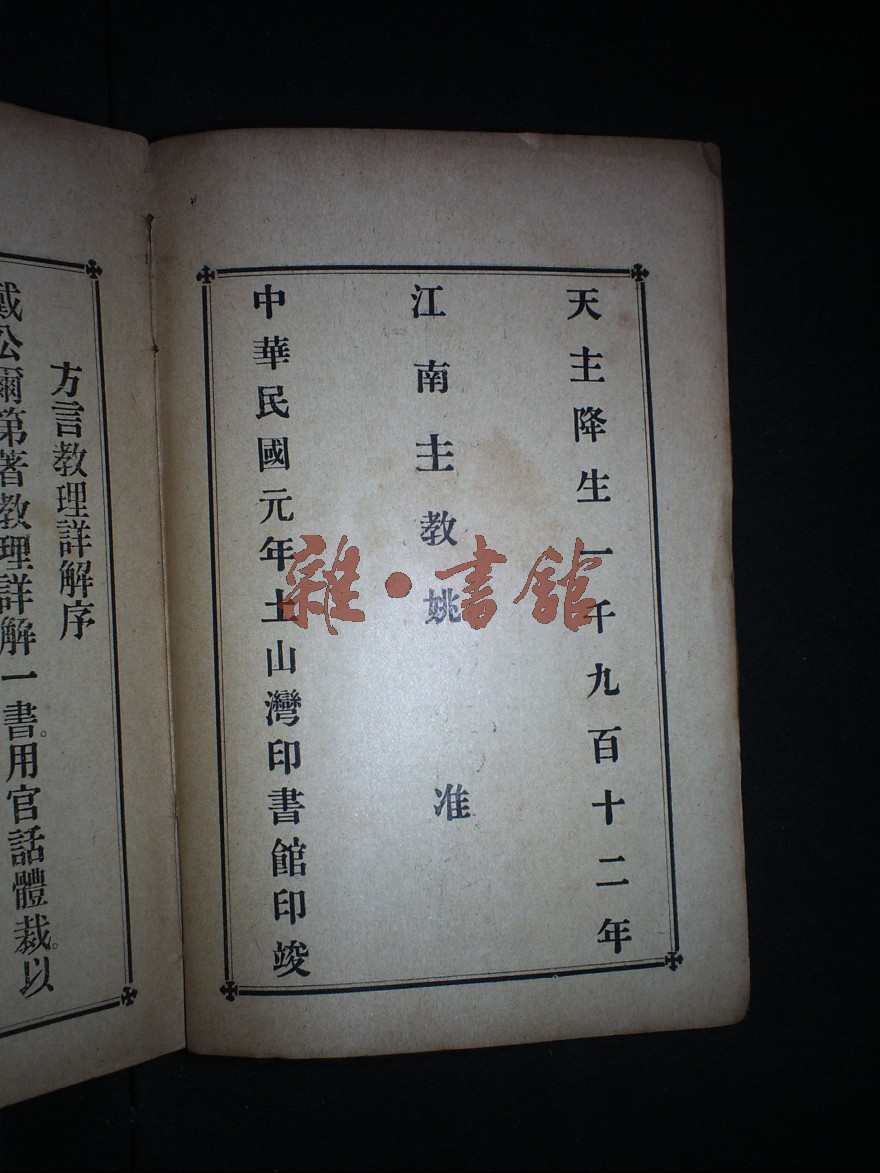 天主降生一千九百十二年
江南主教姚 准
中華民國元年土山灣印書館印竣
方言教理詳解序
戴公爾第著教理詳解一書。用官話體裁。以
雜·書館